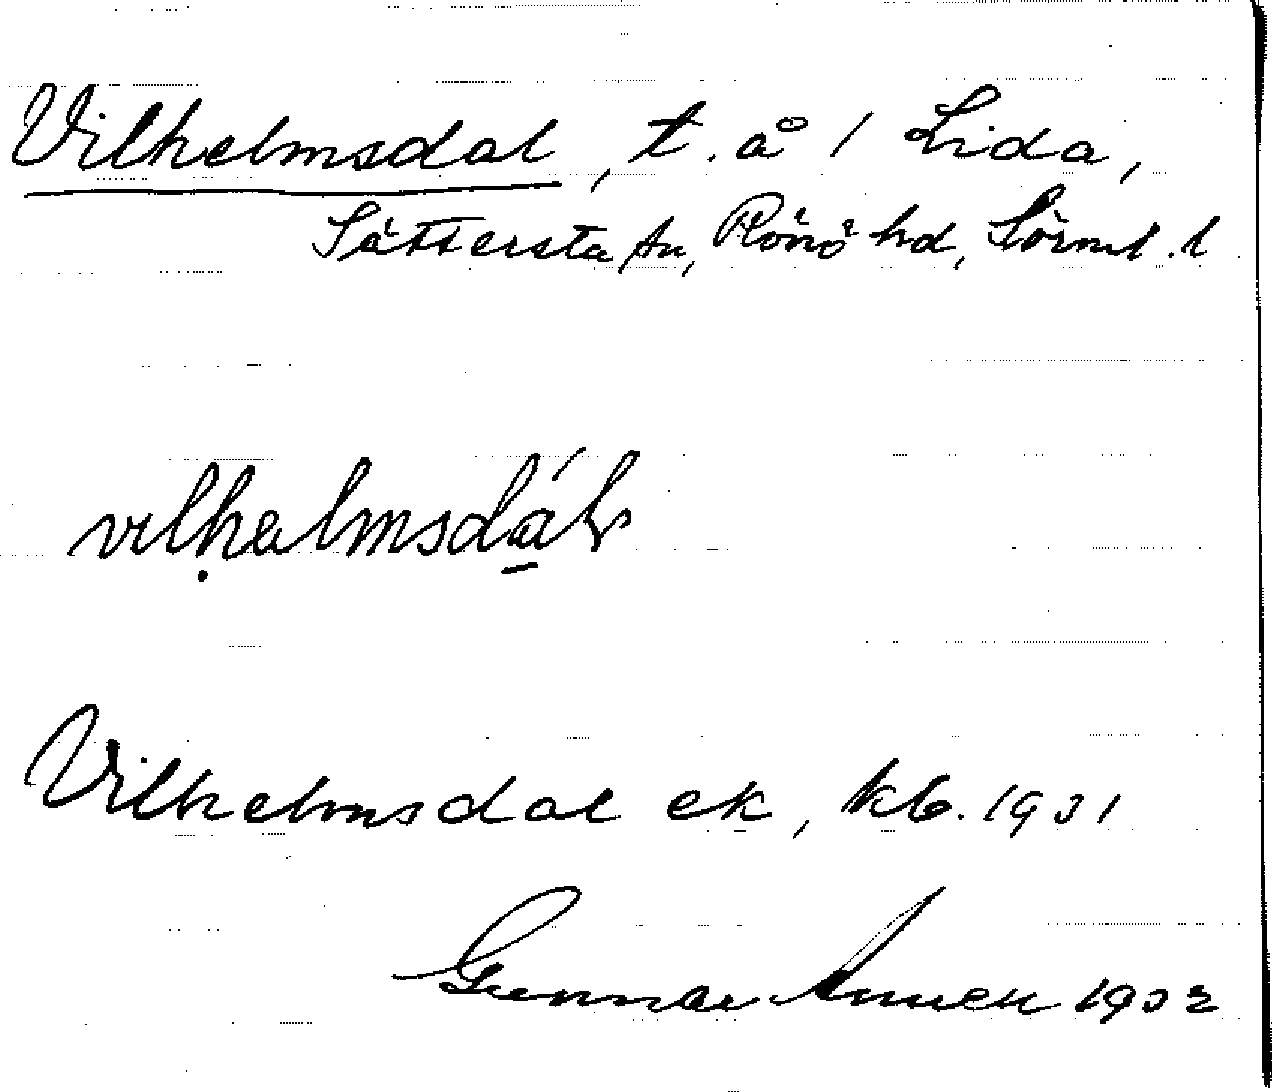 Vilhelmsdal, t. å 1 Lida,
Sättersta sn, Rönö hd, Sörml. l
vilhelmsdál
Vilhelmsdal ek, kb. 1931
Gunnar 1932